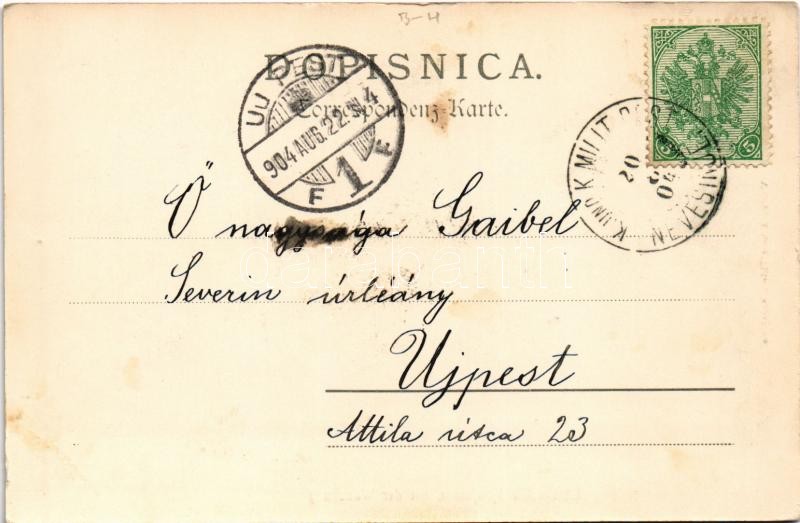 B-H
DOPISNICA.
Correspondenz-Karte.
UJ PEST
904 AUG. 22. N 4
F 1 F
K. UND K. MILIT. POST
NEVESINJE
20
04
5
Ő nagysága Gaibel
Severin úrleány
Ujpest
Attila utca 23
darabanth